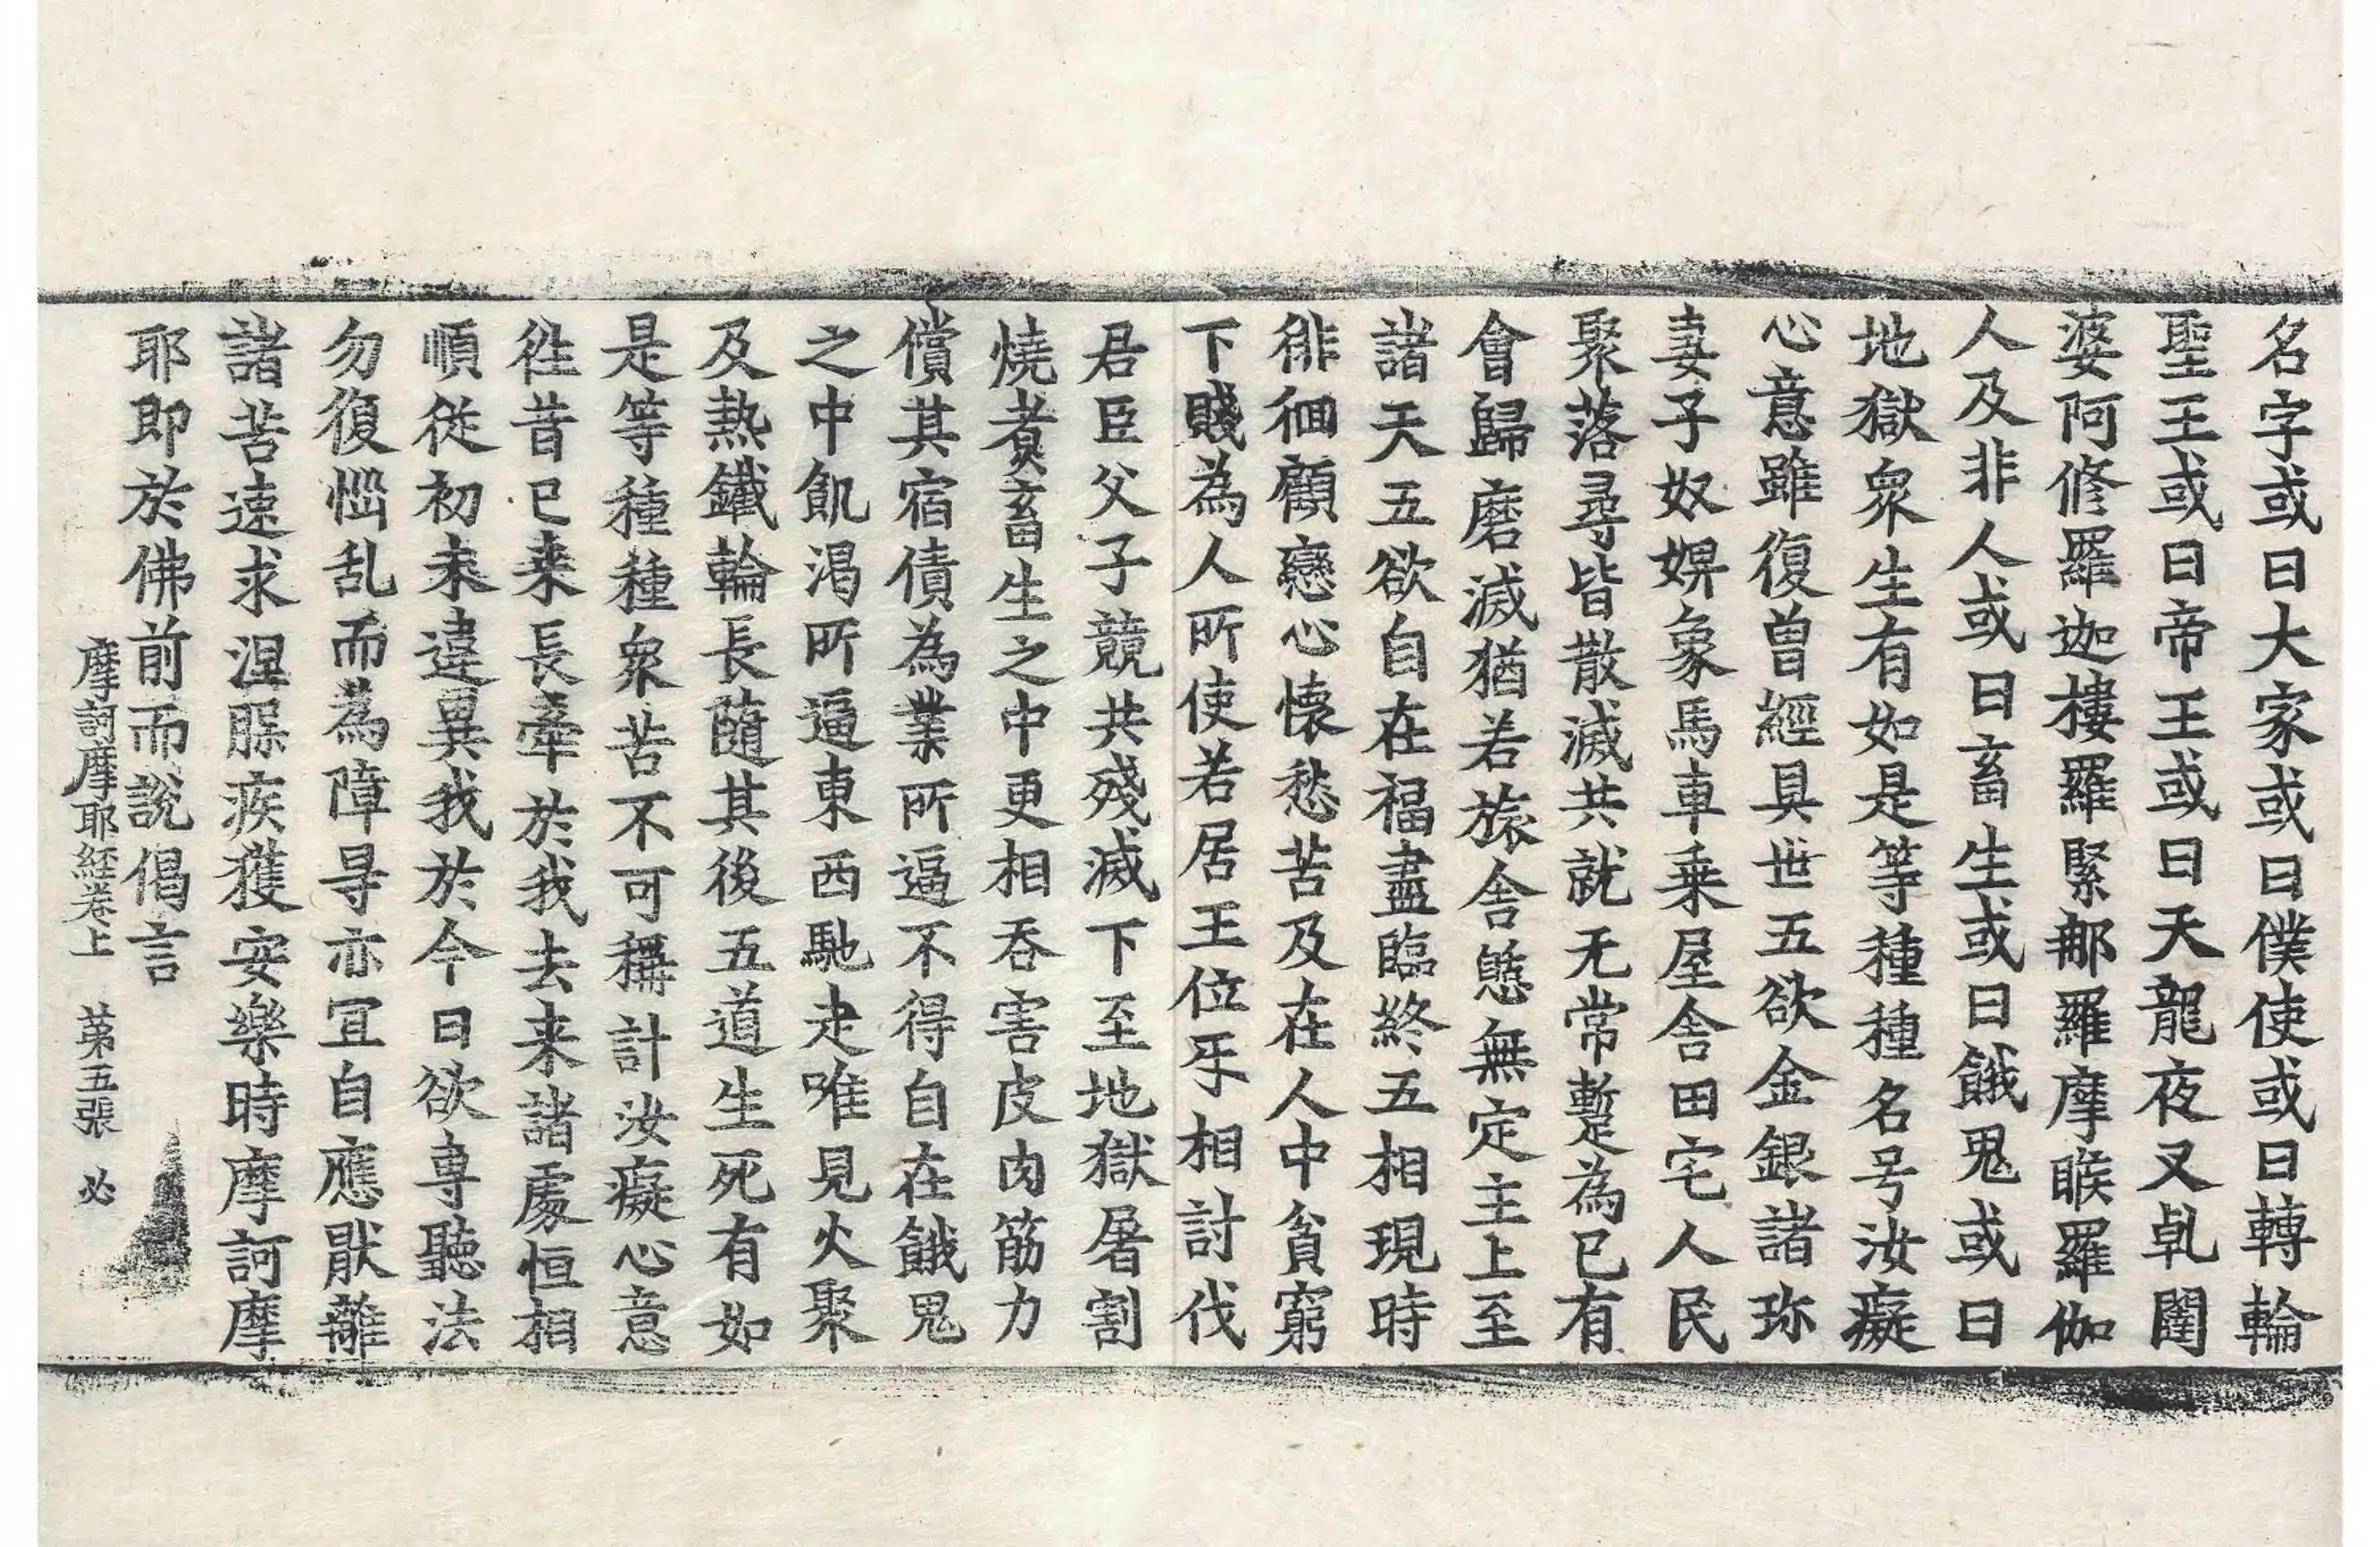 名字或曰大家或曰僕使或曰轉輪
聖王或曰帝王或曰天龍夜叉乹闥
婆阿修羅迦樓羅緊那羅摩睺羅伽
人及非人或曰畜生或曰餓鬼或曰
地獄衆生有如是等種種名号汝癡
心意雖復曾經具世五欲金銀諸珎
妻子奴婢象馬車乗屋舎田宅人民
聚落尋皆散滅共就无常蹔為已有
會歸磨滅猶若旅舎㦣無定主上至
諸天五欲自在福盡臨終五相現時
徘徊顧戀心懷愁苦及在人中貧窮
下賤為人所使若居王位㸦相討伐
君臣父子競共殘滅下至地獄屠割
燒煑畜生之中更相吞害皮肉筋力
償其宿債為業所逼不得自在餓鬼
之中飢渴所逼東西馳走唯見火聚
及熱鐵輪長隨其後五道生死有如
是等種種衆苦不可稱計汝癡心意
徃昔已来長牽於我去来諸處恒相
順従初未違異我於今日欲専聽法
勿復惱乱而為障㝵亦冝自應猒離
諸苦速求涅槃疾獲安樂時摩訶摩
耶即於佛前而說偈言
摩訶摩耶経卷上　苐五張　必